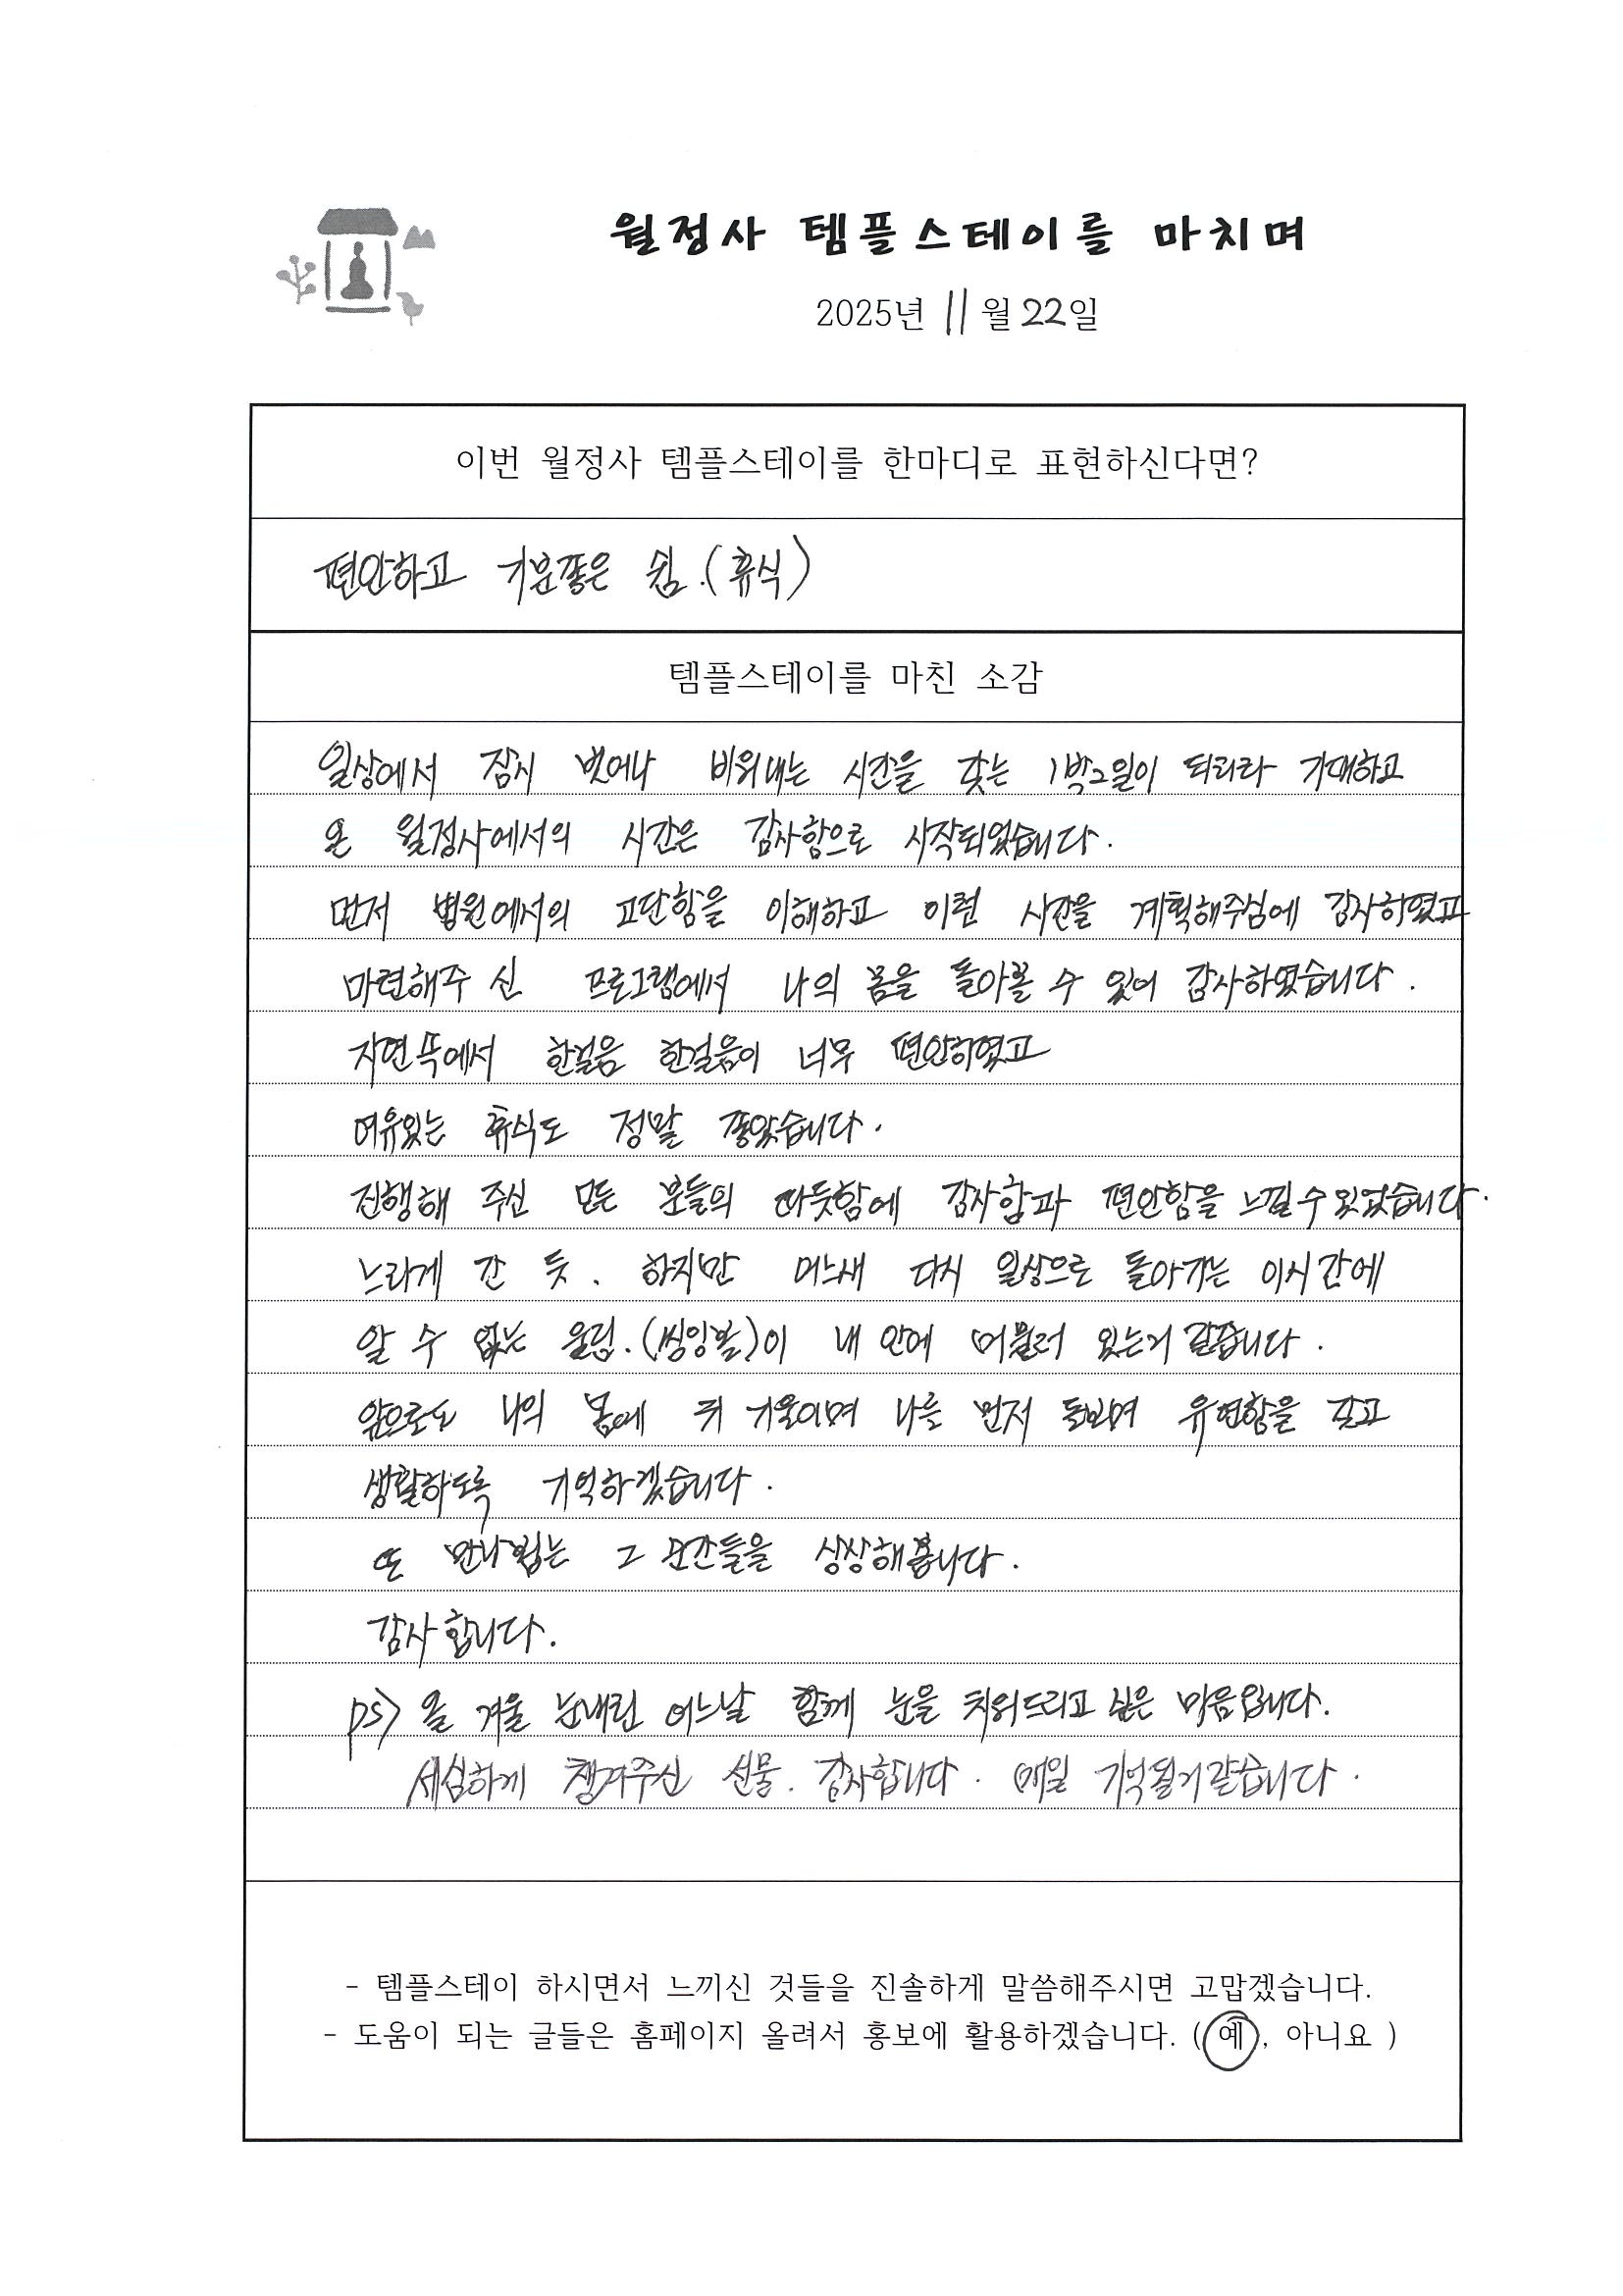 월정사 템플스테이를 마치며
2025년 11월 22일
이번 월정사 템플스테이를 한마디로 표현하신다면?
편안하고 기분좋은 쉼.(휴식)
템플스테이를 마친 소감
일상에서 잠시 벗어나 비워내는 시간을 갖는 1박2일이 되리라 기대하고
온 월정사에서의 시간은 감사함으로 시작되었습니다.
먼저 병원에서의 고단함을 이해하고 이런 시간을 계획해주심에 감사하였고
마련해주신 프로그램에서 나의 몸을 돌아볼 수 있어 감사하였습니다.
자연속에서 한걸음 한걸음이 너무 편안하였고
여유있는 휴식도 정말 좋았습니다.
진행해 주신 모든 분들의 따듯함에 감사함과 편안함을 느낄 수 있었습니다.
느리게 간 듯. 하지만 어느새 다시 일상으로 돌아가는 이시간에
알 수 없는 울림.(씽잉볼)이 내 안에 머물러 있는거 같습니다.
앞으로도 나의 몸에 귀 기울이며 나를 먼저 돌보며 유연함을 갖고
생활하도록 기억하겠습니다.
또 만나뵙는 그 순간들을 상상해봅니다.
감사합니다.
ps) 올 겨울 눈내린 어느날 함께 눈을 치워드리고 싶은 마음입니다.
세심하게 챙겨주신 선물. 감사합니다. 매일 기억될거같습니다.
- 템플스테이 하시면서 느끼신 것들을 진솔하게 말씀해주시면 고맙겠습니다.
- 도움이 되는 글들은 홈페이지 올려서 홍보에 활용하겠습니다. ( 예 , 아니요 )